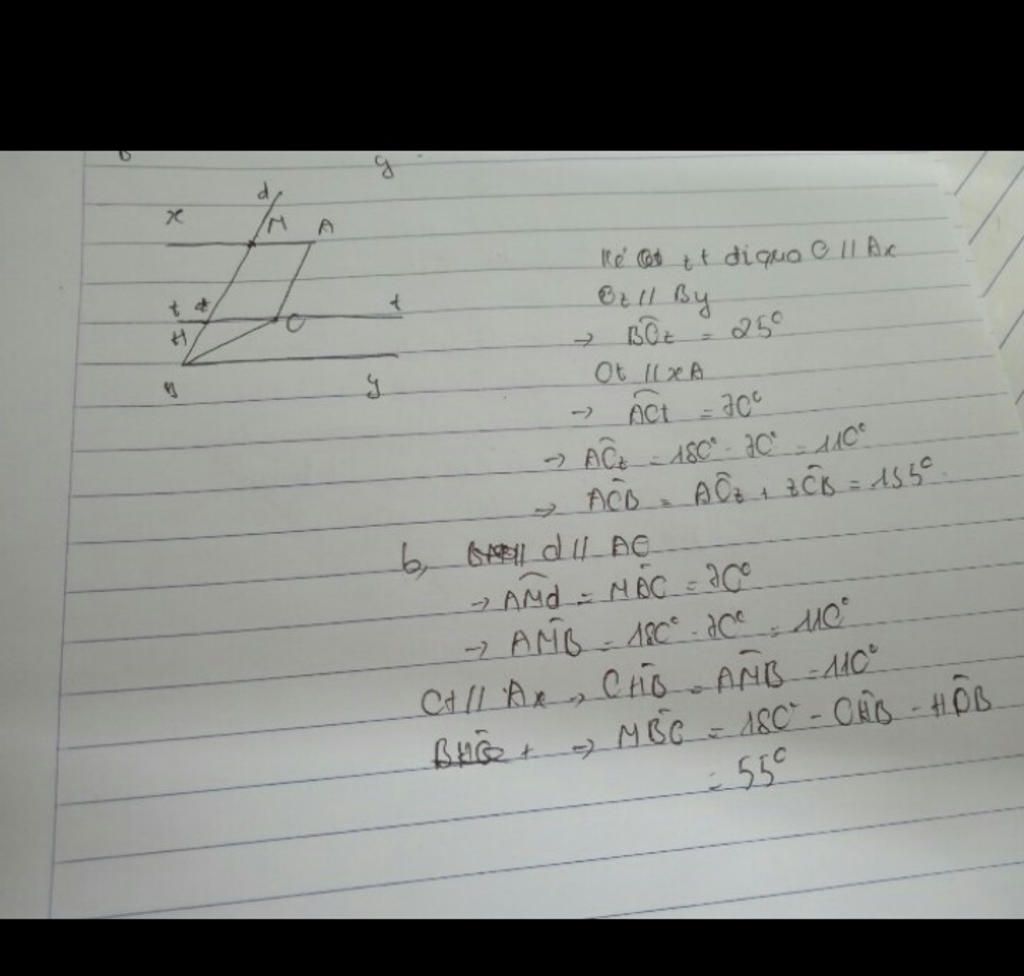 B y
d
x M A
t z C t
H
B y
Kẻ zt đi qua C // Ax
Cz // By
→ BĈz = 25°
Ct // xA
→ AĈt = 70°
→ AĈz = 180° - 70° = 110°
→ AĈB = AĈz + zĈB = 135°
b, d // AC
→ AM̂d = MÂC = 70°
→ AM̂B = 180° - 70° = 110°
Ct // Ax → CĤB = AM̂B = 110°
→ MB̂C = 180° - CĤB - HĈB
= 55°